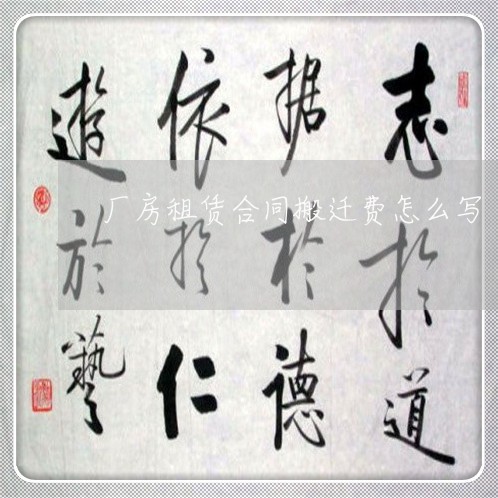 志於道
据於德
依於仁
遊於藝
厂房租赁合同搬迁费怎么写